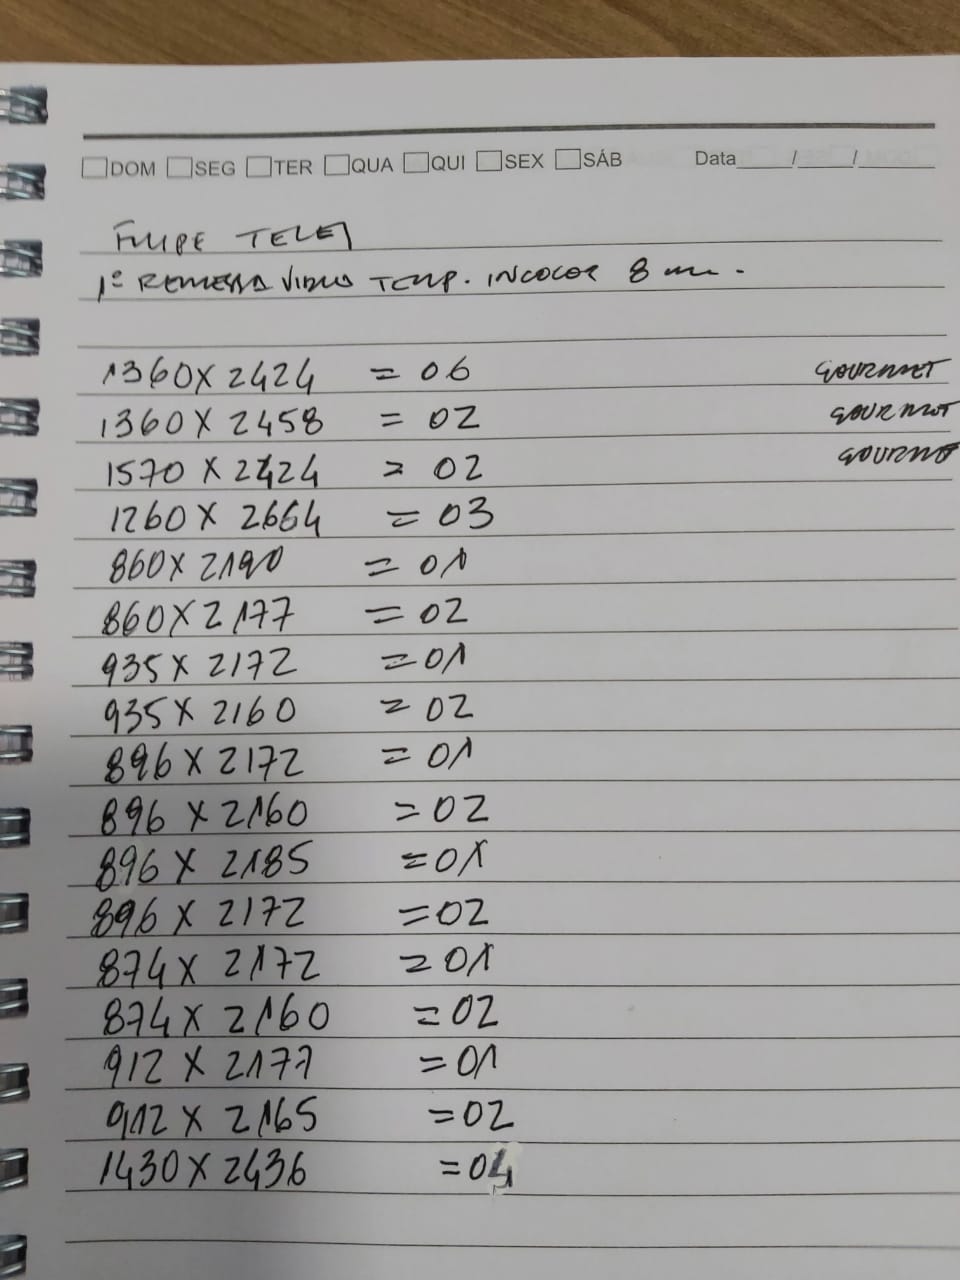 DOM SEG TER QUA QUI SEX SÁB Data / /
FILIPE TELES
1º REMESSA VIDRO TEMP. INCOLOR 8 mm.
1360 X 2424 = 06 GOURMET
1360 X 2458 = 02 GOURMET
1570 X 2424 = 02 GOURME
1260 X 2664 = 03
860 X 2190 = 01
860 X 2177 = 02
935 X 2172 = 01
935 X 2160 = 02
896 X 2172 = 01
896 X 2160 = 02
896 X 2185 = 01
896 X 2172 = 02
874 X 2172 = 01
874 X 2160 = 02
912 X 2177 = 01
912 X 2165 = 02
1430 X 2436 = 04